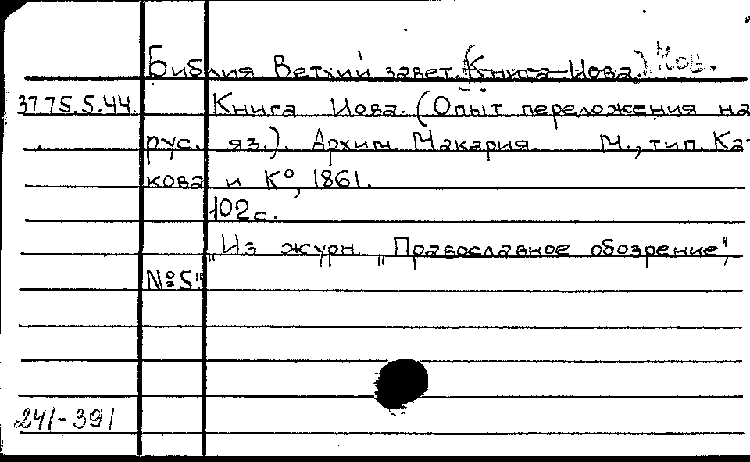 Библия Ветхий завет. (Книга Иова.) Иов.
37 75.5.44. Книга Иова. (Опыт переложения на
рус. яз.). Архим. Макария. М., тип. Кат-
кова и К°, 1861.
102 с.
"Из журн. "Православное обозрение",
№ 5".
241-391